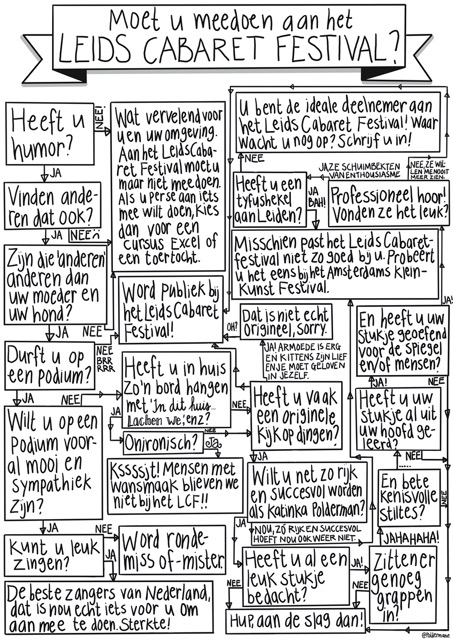 Moet u meedoen aan het
LEIDS CABARET FESTIVAL?
Heeft u
humor?
NEE!
JA
Vinden ande-
ren dat ook?
JA
NEE
Zijn die 'anderen'
anderen dan
uw moeder en
uw hond?
JA
NEE
Durft u op
een podium?
NEE
BRR
RRR
JA
Wilt u op een
Podium voor-
al mooi en
sympathiek
zijn?
JA
NEE
Kunt u leuk
zingen?
NEE
JA
Word ronde-
miss of-mister
De beste zangers van Nederland,
dat is nou echt iets voor u om
aan mee te doen. Sterkte!
Wat vervelend voor
u en uw omgeving.
Aan het Leids Caba-
ret Festival moet u
maar niet meedoen.
Als u perse aan iets
mee wilt doen, kies
dan voor een
cursus Excel of
een toertocht.
Word publiek bij
het Leids Cabaret
Festival!
OH?
Heeft u in huis
zo'n bord hangen
met 'In dit huis
lachen we', enz?
NEE
JA
Onironisch?
NEE
JA
Kssssjt! Mensen met
wansmaak blieven we
niet bij het LCF!!
U bent de ideale deelnemer aan
het Leids Cabaret Festival! Waar
wacht u nog op? Schrijf u in!
NEE
JA ZE SCHUIMBEKTEN
VAN ENTHOUSIASME
NEE, ZE WIL-
LEN ME NOOIT
MEER ZIEN.
Heeft u een
tyfushekel
aan Leiden?
JA
BAH!
Professioneel hoor!
Vonden ze het leuk?
Misschien past het Leids Cabaret-
festival niet zo goed bij u. Probeert
u het eens bij het Amsterdams Klein-
Kunst Festival.
JA!
Dat is niet echt
origineel, sorry.
JA! ARMOEDE IS ERG
EN KITTENS ZIJN LIEF
EN JE MOET GELOVEN
IN JEZELF.
En heeft u uw
stukje geoefend
voor de spiegel
en/of mensen?
JA!
Heeft u vaak
een originele
kijk op dingen?
NEE
JA
Heeft u uw
stukje al uit
uw hoofd ge-
leerd?
NEE
.....
Wilt u net zo rijk
en succesvol worden
als Katinka Polderman?
JA
NOU, ZO RIJK EN SUCCESVOL
HOEFT NOU OOK WEER NIET.
En bete
kenisvolle
stiltes?
NEE
JAHAHAHA!
Heeft u al een
leuk stukje
bedacht?
JA!
NEE
Zitten er
genoeg
grappen
in?
NEE
Hup, aan de slag dan!
@Poldermans